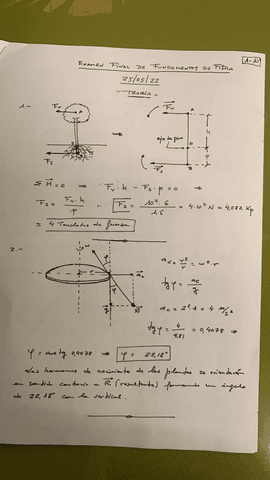 1-10
EXAMEN FINAL DE FUNDAMENTOS DE FÍSICA
25/05/22
- TEORÍA -
1.-
Fv
Fv
A
h
eje de giro
O
P
B
Fs
Fs
Σ M = 0 ⇒ Fv · h - Fs · p = 0 ⇒
Fs = Fv · h / p = Fs = 10⁴ · 6 / 1.5 = 4 · 10⁴ N = 4,082 Kp
≈ 4 Toneladas de fuerza
2.-
ω
φ
r
φ
R
ac = v² / r = ω² · r
tg φ = ac / g
ac = 2² · 1 = 4 m/s²
tg φ = 4 / 9.81 = 0,4078 ⇒
φ = arctg 0,4078 ⇒ φ = 22,18°
Las hormonas de crecimiento de las plantas se orientarán
en sentido contrario a R (resultante) formando un ángulo
de 22,18° con la vertical.